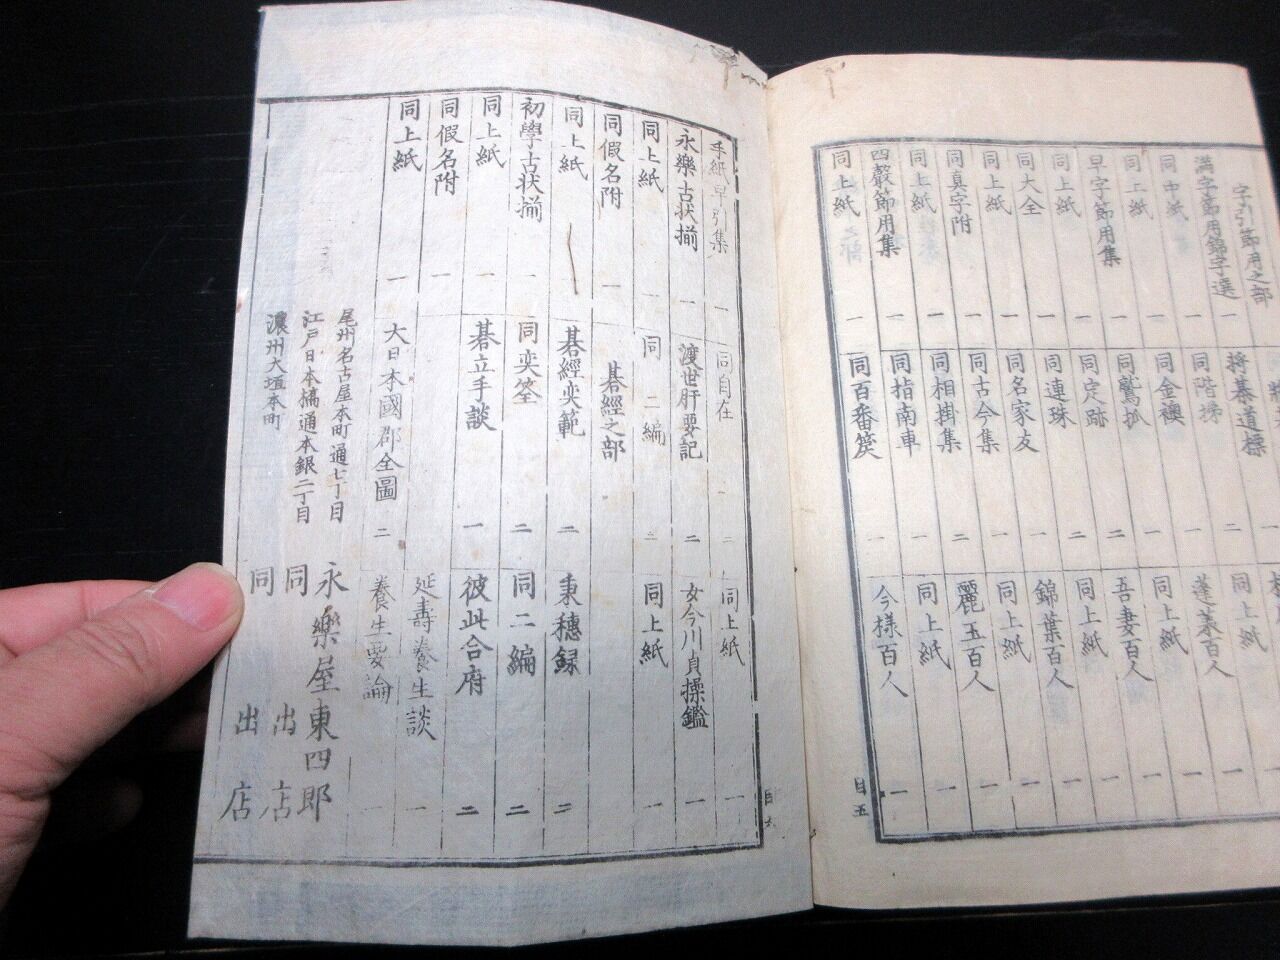 字引節用之部
満字節用錦字選 一
同中紙 一
同上紙 一
早字節用集 一
同上紙 一
同大全 一
同上紙 一
同真字附 一
同上紙 一
四聲節用集 一
同上紙 一
将棊道標 二
同階梯 一
同金襖 一
同鷙抓 二
同定跡 二
同連珠 一
同名家友 一
同古今集 一
同相掛集 一
同指南車 一
同百番箋 一
同上紙 一
蓬莱百人 一
同上紙 一
吾妻百人 一
同上紙 一
錦葉百人 一
同上紙 一
麗玉百人 一
同上紙 一
今様百人 一
目五
手紙早引集 一
永樂古状揃 一
同上紙 一
同假名附 一
同上紙 一
初學古状揃 一
同上紙 一
同假名附 一
同上紙 一
同自在 二
渡世肝要記 二
同二編 二
碁經之部
碁經奕範 二
同奕筌 二
碁立手談 一
大日本國郡全圖 二
同上紙 一
女今川貞操鑑 一
同上紙 一
秉穗録 二
同二編 二
彼此合府 二
延壽養生談 一
養生要論 一
尾州名古屋本町通七丁目
江戸日本橋通本銀二丁目
濃州大垣本町
永樂屋東四郎
同出店
同出店
目六